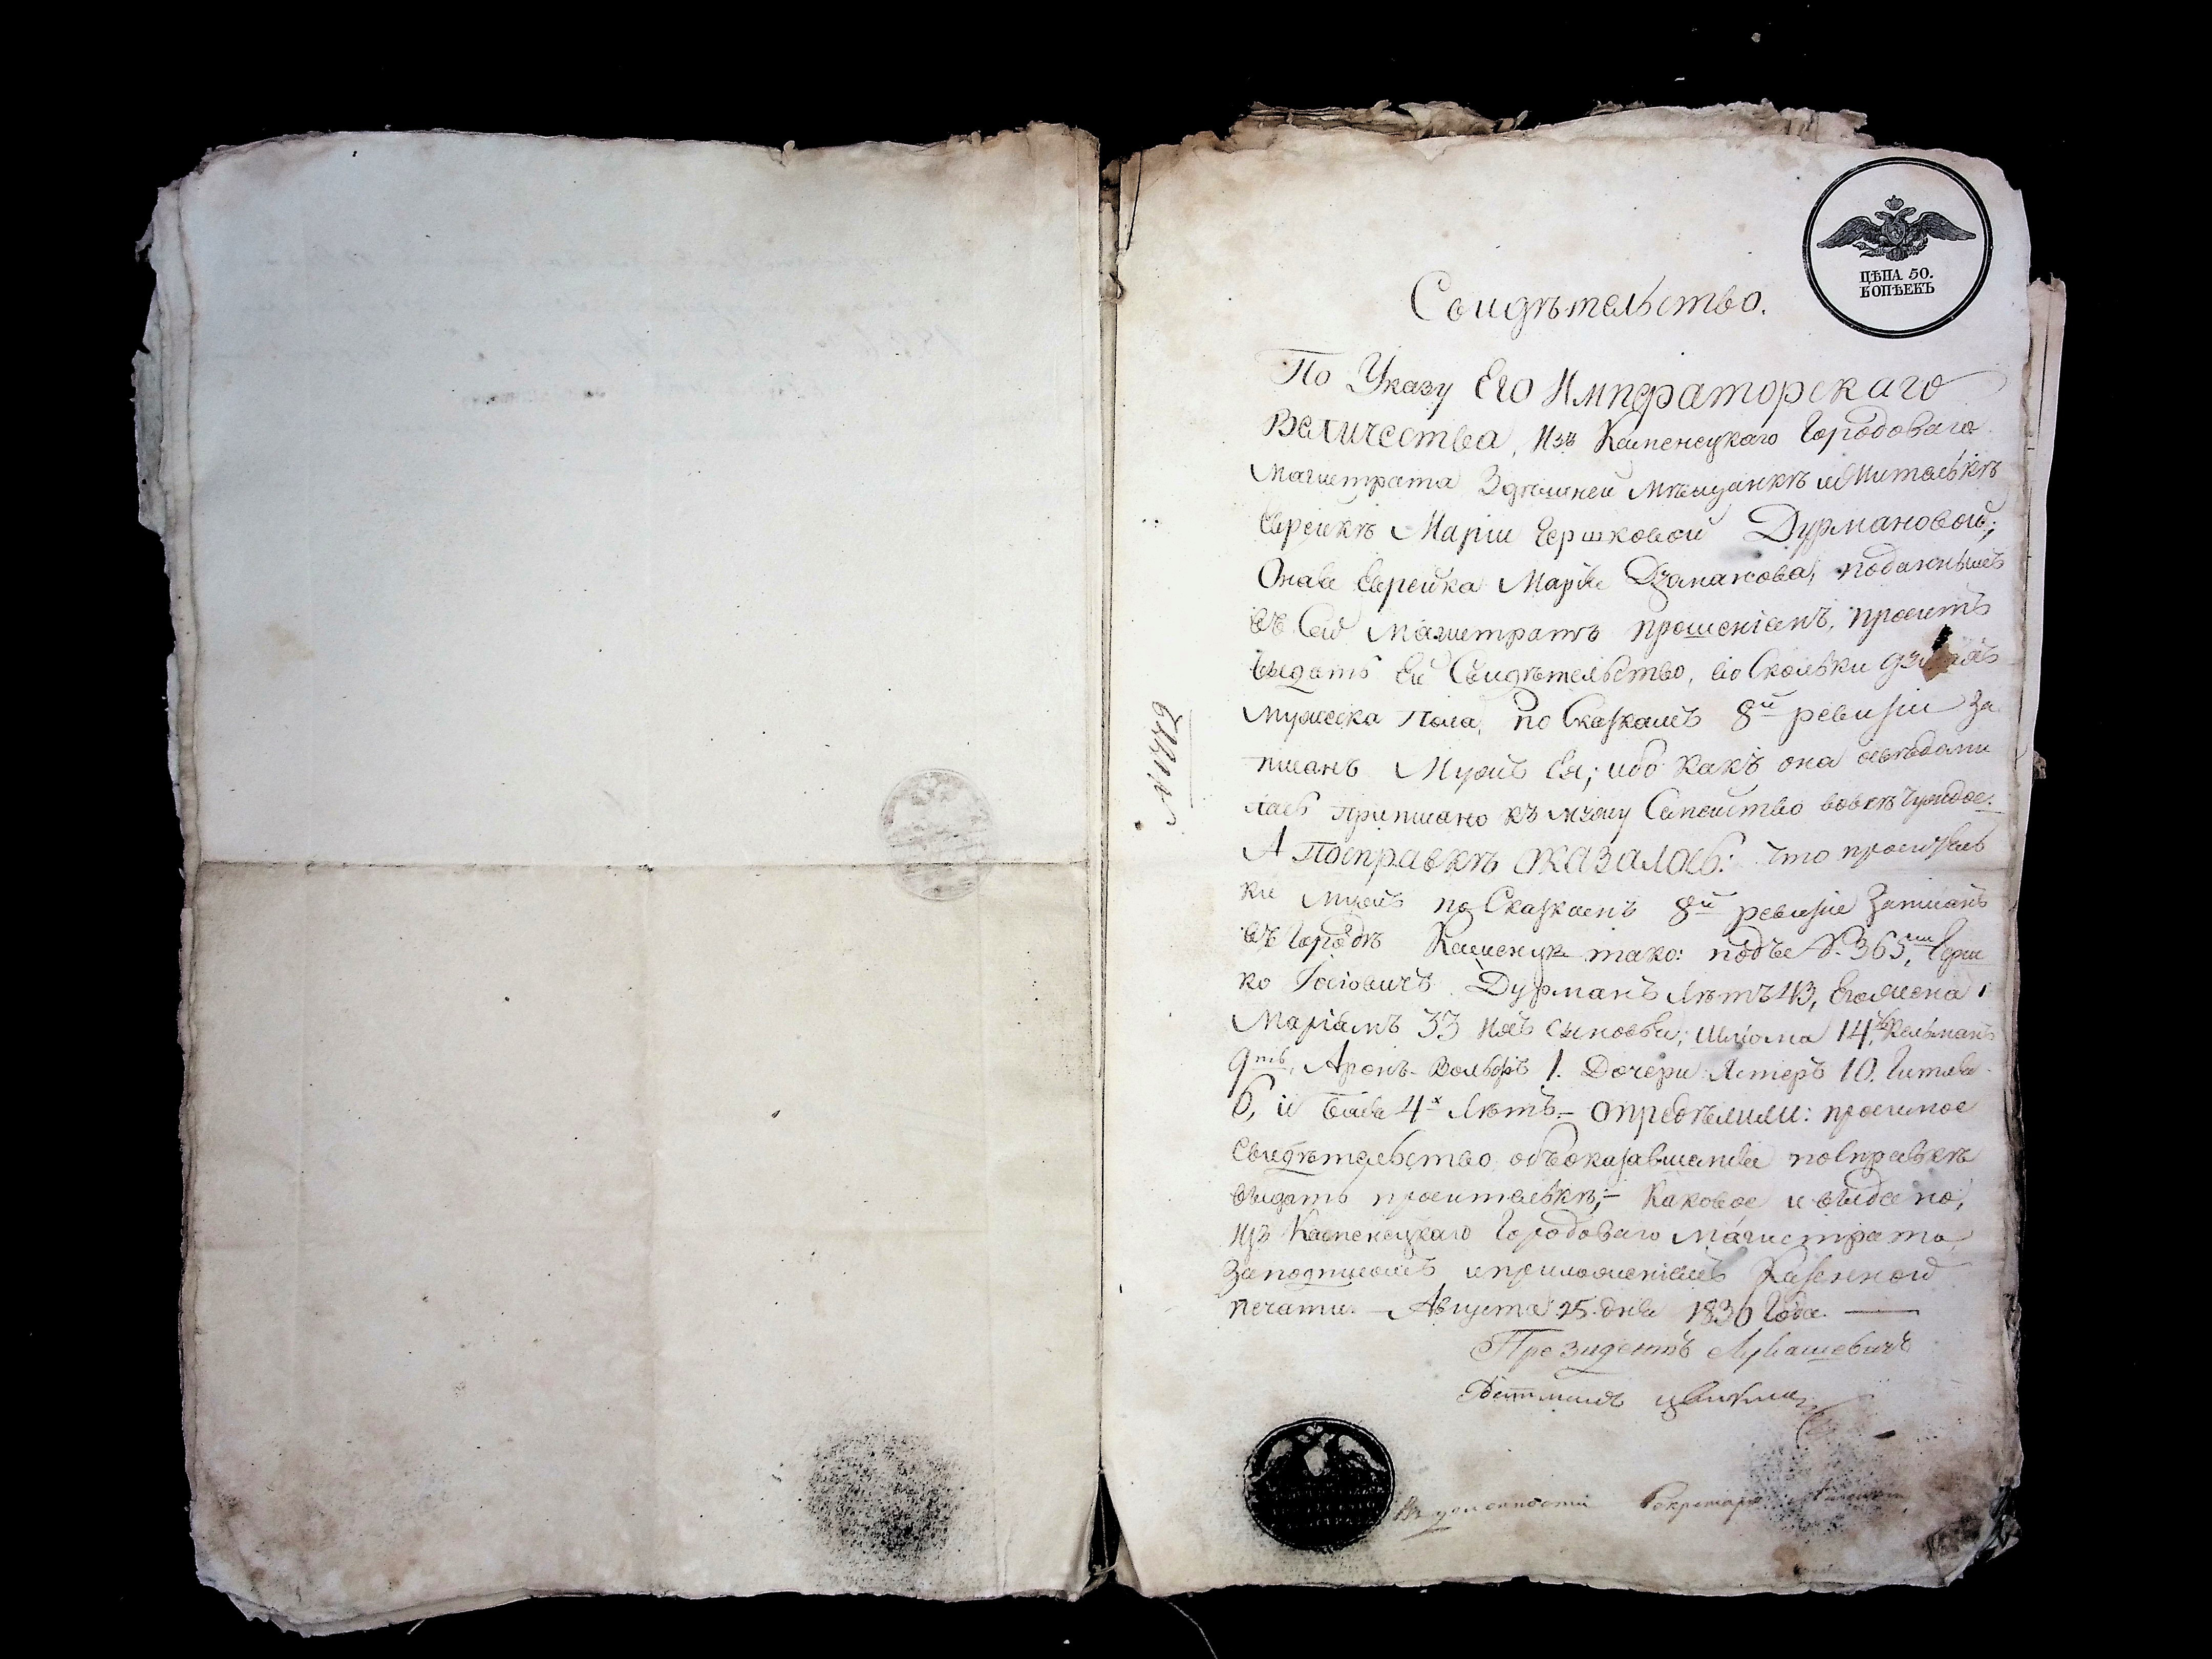 ЦѢНА 50.
КОПѢЕКЪ
Свидѣтельство.
По Указу Его Императорскаго
Величества, Изъ Каменецкаго Городоваго
Магистрата Здѣшней мѣщанкѣ
Еврейкѣ Маріи Гершковой Дурмановой;
Еврейка Марія поданнымъ
въ Сей Магистратъ прошеніемъ, проситъ
выдать Ей Свидѣтельство,
мужеска пола, по Сказкамъ 8й ревизіи За
писанъ Мужъ Ея; ибо какъ она освѣдоми
лась приписано къ Семейство вовсѣ чуждое.
А посправкѣ оказалось: что
мужъ по Сказкамъ 8й ревизіи Записанъ
въ Городѣ Каменцѣ тако: подъ № 365, Герш
ко Іосіовичъ Дурманъ лѣтъ 43, Его жена
Маріамъ 33 Ихъ сыновья; Шліома 14, Кельманъ
9ть, Аронъ-Вольфъ 1. Дочери Эстеръ 10. Гитля
6, и 4х лѣтъ.- опредѣлили: просимое
Свидѣтельство объоказавшемся посправкѣ
выдать просителькѣ;- каковое и выдано,
изъ Каменецкаго Городоваго Магистрата,
Заподписомъ иприложеніемъ Казенной
печати. - Августа 25 дня 1836 Года. —
Президентъ Лукашевичъ
Въ должности Секретаря